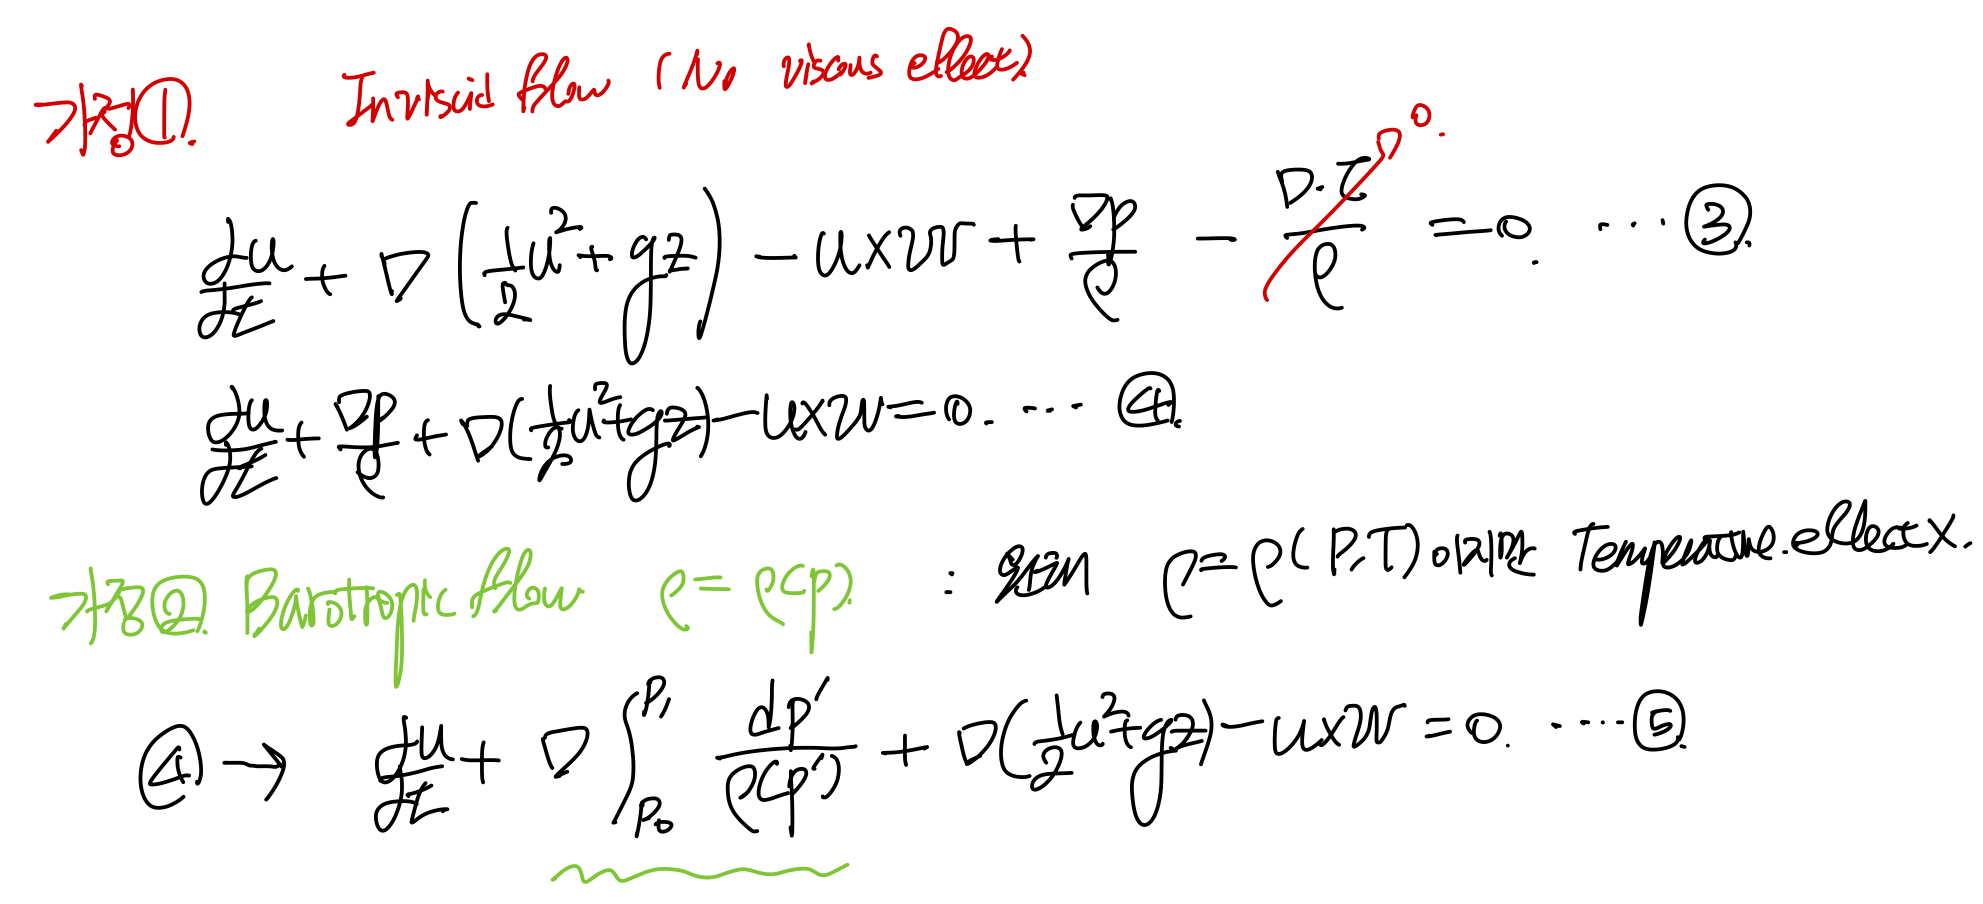 가정①. Inviscid flow (No viscous effect)
∂u/∂t + ∇(1/2 u² + gz) − u×w + ∇p/ρ − ∇·τ/ρ = 0. ··· ③
0.
∂u/∂t + ∇p/ρ + ∇(1/2 u² + gz) − u×w = 0. ··· ④
가정② Barotropic flow ρ = ρ(p) : 원래 ρ = ρ(P,T) 이지만 Temperature effect X.
④ → ∂u/∂t + ∇∫_{P₀}^{P₁} dp′/ρ(p′) + ∇(1/2 u² + gz) − u×w = 0. ···· ⑤